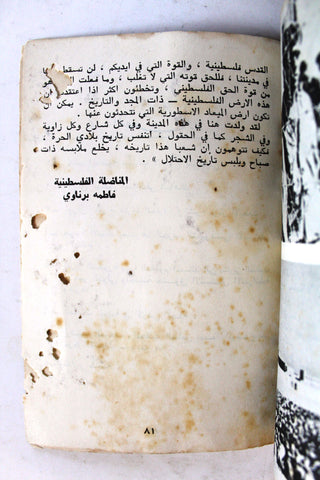 القدس فلسطينية ، والقوة التي في ايديكم ، لن تسقط
مدينتنا ، فللحق قوته التي لا تغلب ، وما فعلت
من قوة الحق الفلسطيني ، وتخطئون اكثر اذا اعتقدتم
هذه الارض الفلسطينية ــ ذات المجد والتاريخ . يمكن
تكون ارض الميعاد الاسطورية التي تتحدثون عنها .
لقد ولدت هنا في هذه المدينة وفي كل شارع وكل زاوية
وفي الشجر كما في الحقول ، اتنفس تاريخ بلادي الحرة ،
فكيف تتوهمون ان شعبا هذا تاريخه ، يخلع ملابسه ذات
صباح ويلبس تاريخ الاحتلال » .
المناضلة الفلسطينية
فاطمه برناوي
٨١